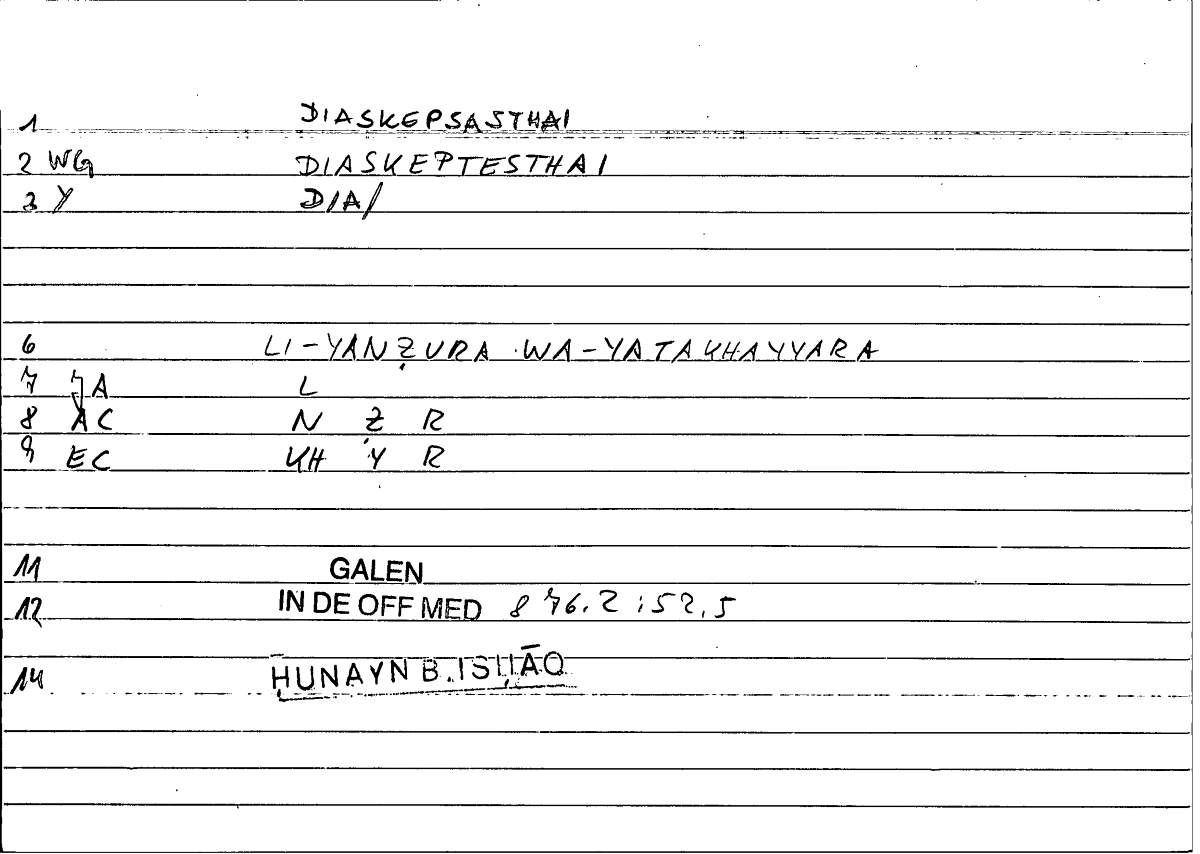 1 DIASKEPSASTHAI
2 WG DIASKEPTESTHAI
3 Y DIA/
6 LI-YANẒURA WA-YATAKHAYYARA
7 JA L
8 AC N Ẓ R
9 EC KH Y R
11 GALEN
12 IN DE OFF MED 876.2;52,5
14 ḤUNAYN B. ISḤĀQ